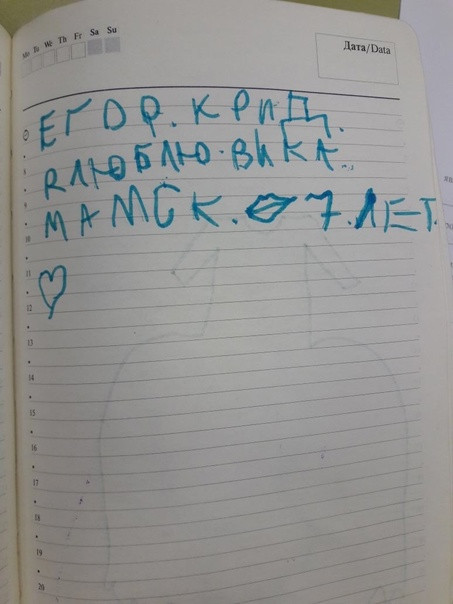 Mo Tu We Th Fr Sa Su
Дата/Data
ЕГОР. КРИД.
ЯЛЮБЛЮ. ВИКА.
МАМСК. 7. ЛЕТ.
8
9
10
11
12
13
14
15
16
17
18
19
20